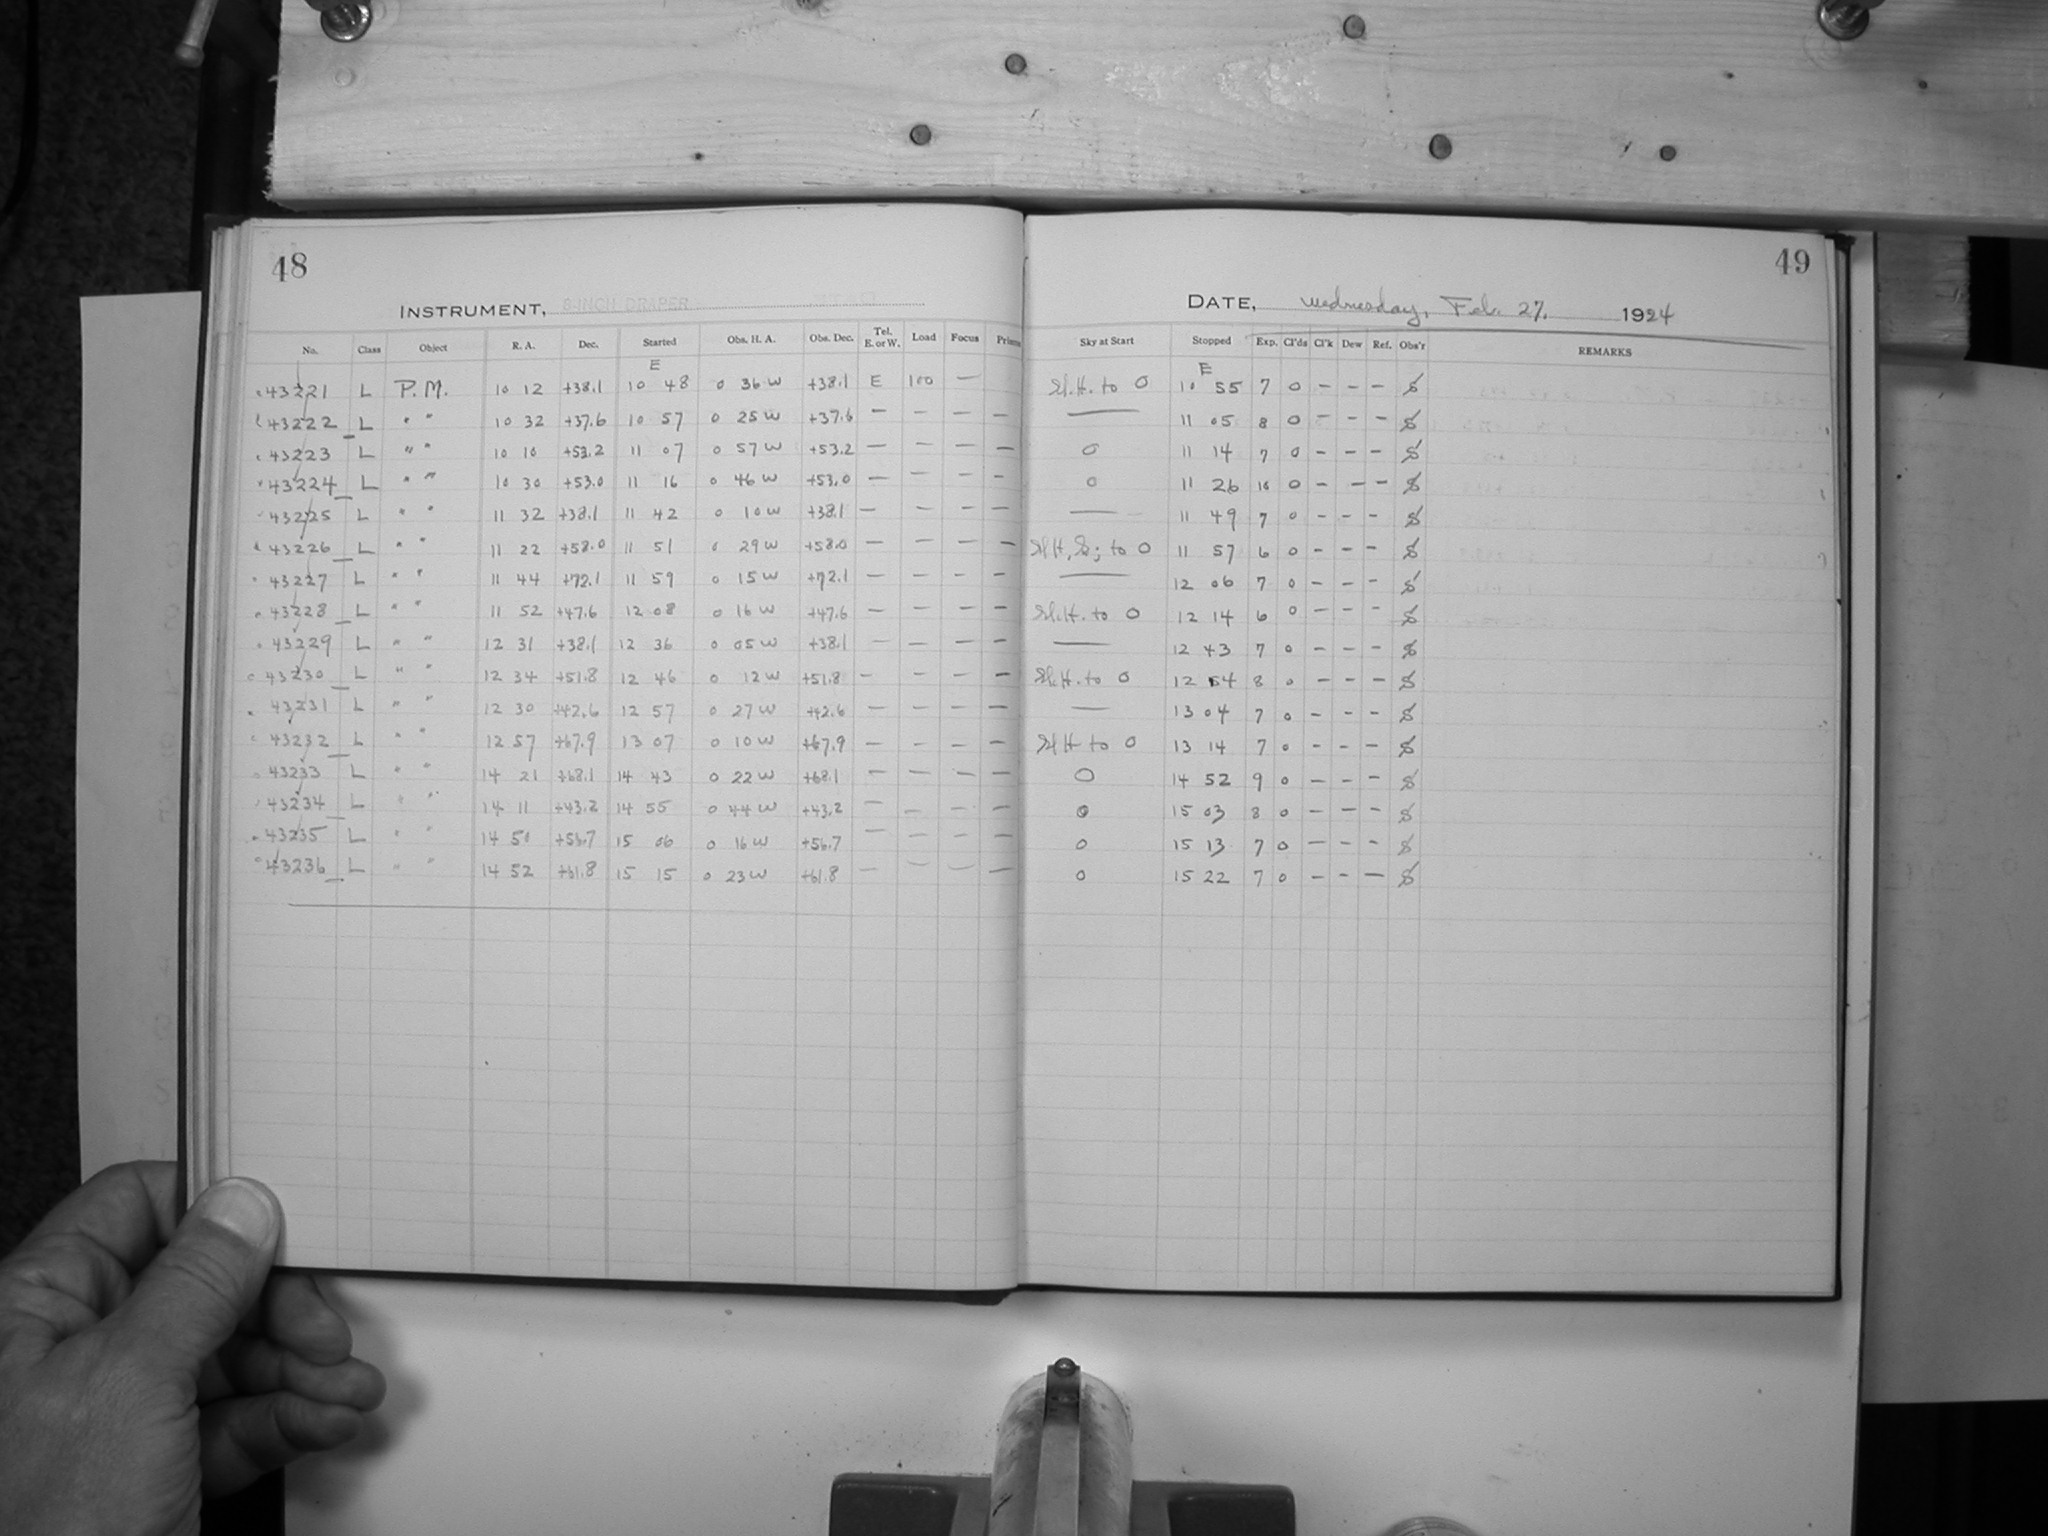 48
49
INSTRUMENT, 8-INCH DRAPER
DATE, Wednesday, Feb. 27. 1924
No. Class Object R. A. Dec. Started Obs. H. A. Obs. Dec. Tel. E. or W. Load Focus Prism Sky at Start Stopped Exp. Cl'ds Cl'k Dew Ref. Obs'r REMARKS
E E
43221 L P.M. 10 12 +38.1 10 48 0 36 W +38.1 E 100 — Sl.H. to 0 10 55 7 0 — — — S
43222 L " " 10 32 +37.6 10 57 0 25 W +37.6 — — — — —— 11 05 8 0 — — — S
43223 L " " 10 10 +53.2 11 07 0 57 W +53.2 — — — — 0 11 14 7 0 — — — S
43224 L " " 10 30 +53.0 11 16 0 46 W +53.0 — — — — 0 11 26 10 0 — — — S
43225 L " " 11 32 +38.1 11 42 0 10 W +38.1 — — — — —— 11 49 7 0 — — — S
43226 L " " 11 22 +58.0 11 51 0 29 W +58.0 — — — — Sl H, to 0 11 57 6 0 — — — S
43227 L " " 11 44 +72.1 11 59 0 15 W +72.1 — — — — —— 12 06 7 0 — — — S
43228 L " " 11 52 +47.6 12 08 0 16 W +47.6 — — — — Sl.H. to 0 12 14 6 0 — — — S
43229 L " " 12 31 +38.1 12 36 0 05 W +38.1 — — — — —— 12 43 7 0 — — — S
43230 L " " 12 34 +51.8 12 46 0 12 W +51.8 — — — — Sl.H. to 0 12 54 8 0 — — — S
43231 L " " 12 30 +42.6 12 57 0 27 W +42.6 — — — — —— 13 04 7 0 — — — S
43232 L " " 12 57 +67.9 13 07 0 10 W +67.9 — — — — Sl H to 0 13 14 7 0 — — — S
43233 L " " 14 21 +68.1 14 43 0 22 W +68.1 — — — — 0 14 52 9 0 — — — S
43234 L " " 14 11 +43.2 14 55 0 44 W +43.2 — — — — 0 15 03 8 0 — — — S
43235 L " " 14 50 +56.7 15 06 0 16 W +56.7 — — — — 0 15 13 7 0 — — — S
43236 L " " 14 52 +61.8 15 15 0 23 W +61.8 — — — — 0 15 22 7 0 — — — S